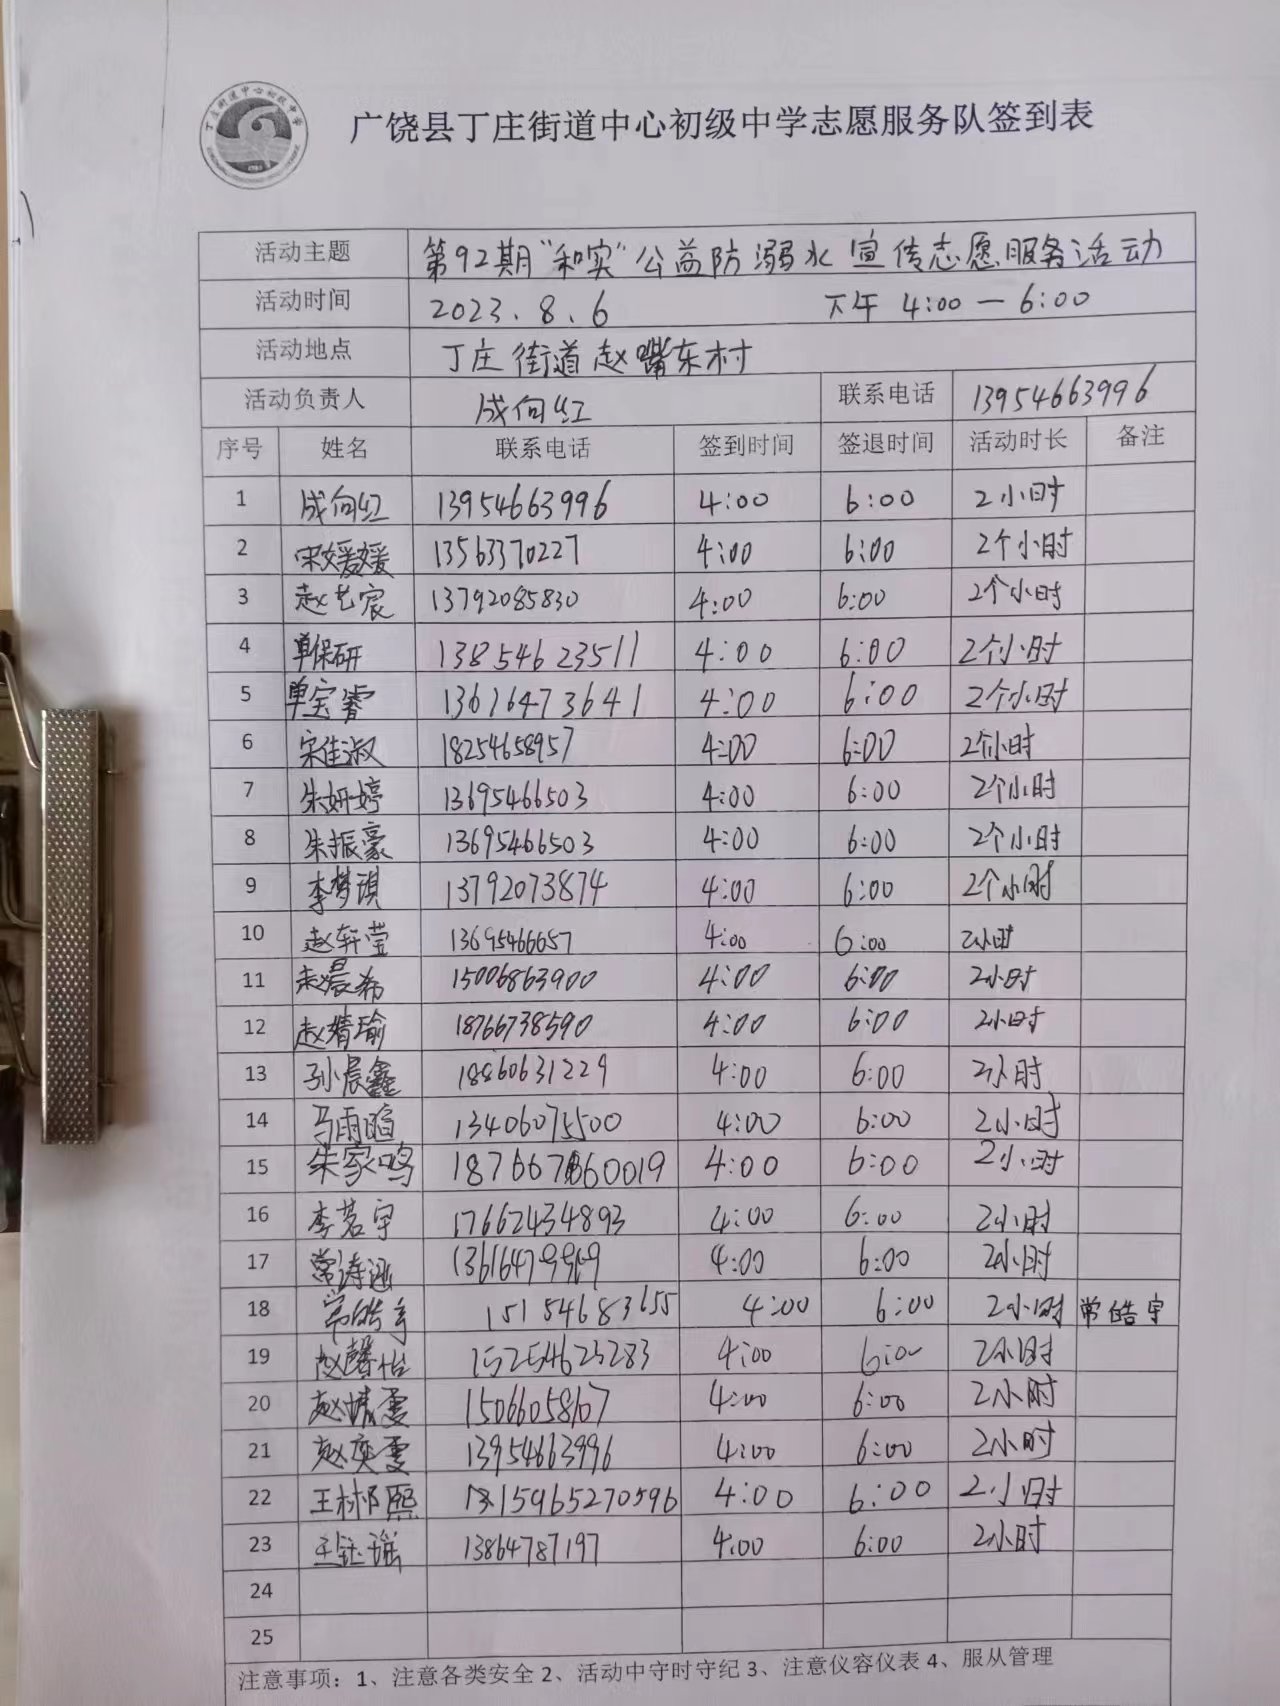 丁庄街道中心初级中学
广饶县丁庄街道中心初级中学志愿服务队签到表
活动主题 第92期"和实"公益防溺水宣传志愿服务活动
活动时间 2023.8.6 下午 4:00 — 6:00
活动地点 丁庄街道赵嘴东村
活动负责人 成向红 联系电话 13954663996
序号 姓名 联系电话 签到时间 签退时间 活动时长 备注
1 成向红 13954663996 4:00 6:00 2小时
2 宋媛媛 13563370227 4:00 6:00 2个小时
3 赵艺宸 13792085830 4:00 6:00 2个小时
4 单保研 13854623511 4:00 6:00 2个小时
5 单宝睿 13616473641 4:00 6:00 2个小时
6 宋佳淑 18254658957 4:00 6:00 2个小时
7 朱妍婷 13695466503 4:00 6:00 2个小时
8 朱振豪 13695466503 4:00 6:00 2个小时
9 李梦琪 13792073874 4:00 6:00 2个小时
10 赵轩莹 13695466657 4:00 6:00 2小时
11 晨希 15006863900 4:00 6:00 2小时
12 赵婧瑜 18766738590 4:00 6:00 2小时
13 孙晨鑫 18860631229 4:00 6:00 2小时
14 马雨暄 13406075500 4:00 6:00 2小时
15 朱家鸣 4:00 6:00 2小时
16 李茗宇 17662434893 4:00 6:00 2小时
17 常涛涵 4:00 6:00 2小时
18 常皓宇 15154683655 4:00 6:00 2小时 常皓宇
19 赵馨怡 15254623283 4:00 6:00 2小时
20 赵婧雯 15066058167 4:00 6:00 2小时
21 赵奕雯 13954663996 4:00 6:00 2小时
22 王彬熙 15965270596 4:00 6:00 2小时
23 王钰瑶 13864787197 4:00 6:00 2小时
24
25
注意事项：1、注意各类安全 2、活动中守时守纪 3、注意仪容仪表 4、服从管理